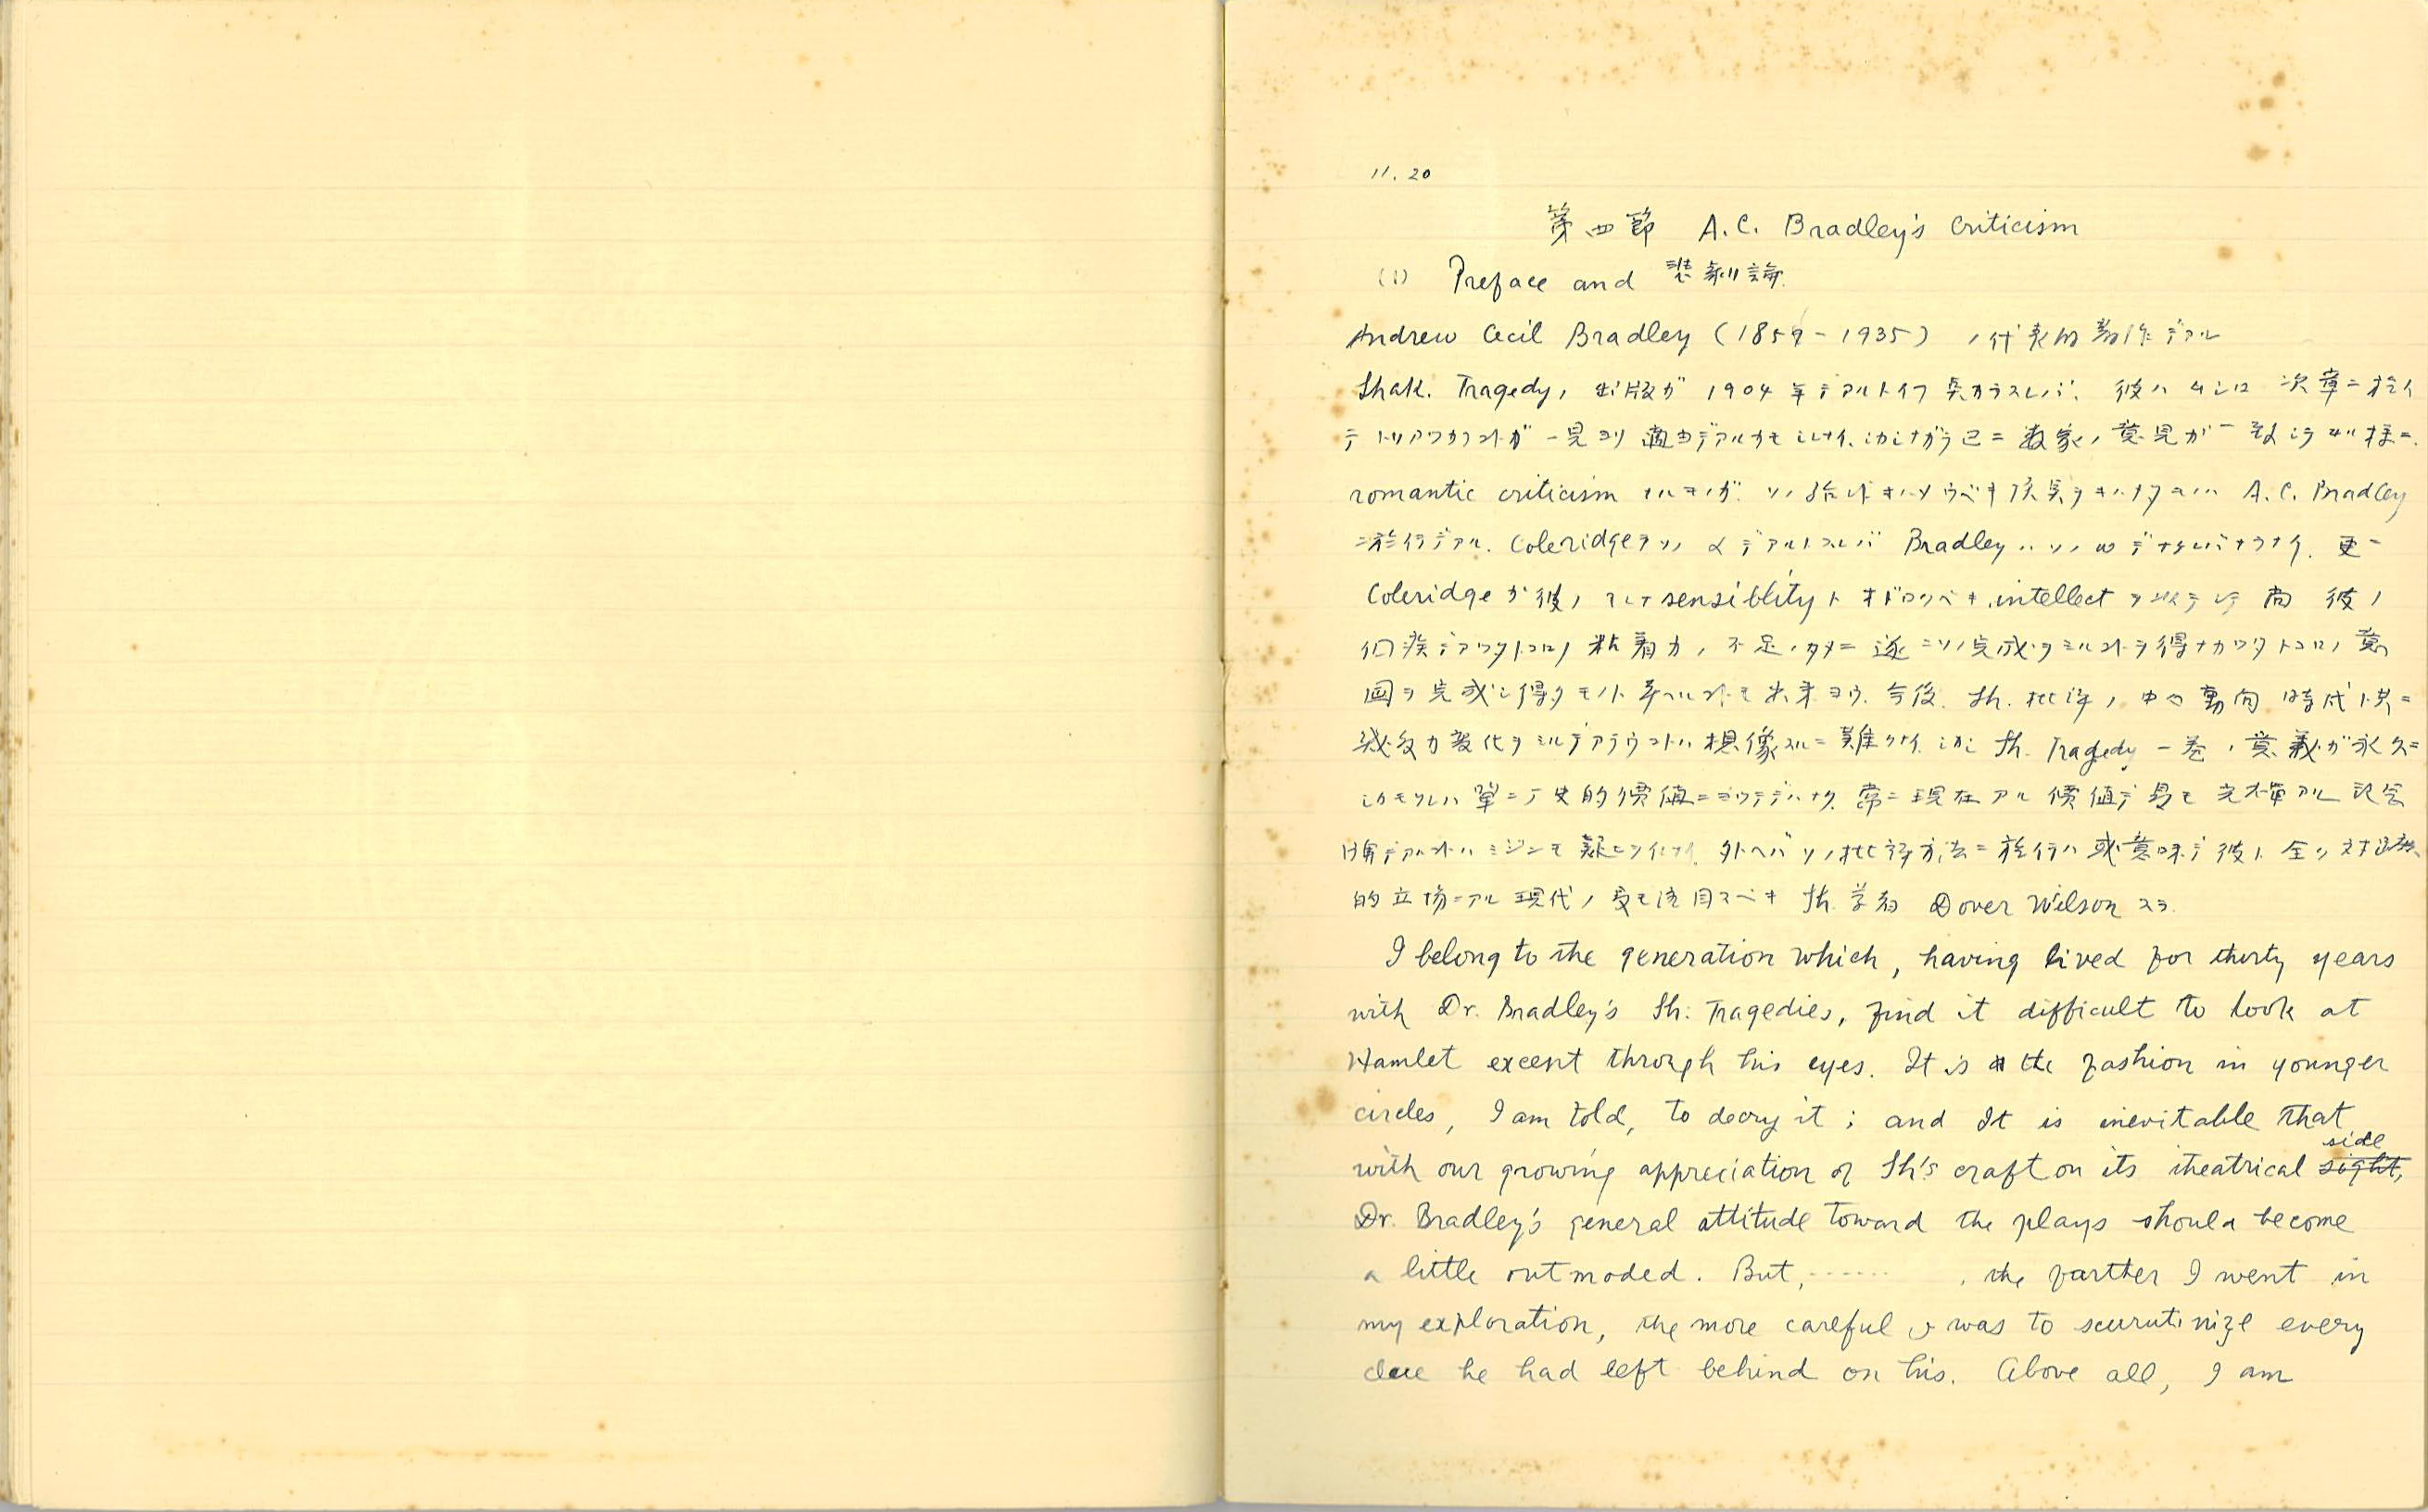 11.20
第四節 A.C. Bradley's Criticism
(1) Preface and 悲劇論.
Andrew Cecil Bradley (1859-1935) ノ代表的勞作デアル
Shak. Tragedy, 出版ガ 1904 年デアルトイフ点カラスレバ, 彼ハムシロ 次章ニ於イ
テトリアツカフコトガ一見ヨリ適当デアルカモシレナイ. シカシナガラ已ニ数家ノ意見ガ一致シテヰル様ニ.
romantic criticism ナルモノガ. ソノ A.C. Bradley
ニ於イテデアル. Coleridgeヲソノ α デアルトスレバ Bradley ハソノ ω デナケレバナラナイ. 更ニ
Coleridge ガ彼ノ sensiblity ト オドロクベキ intellect 尚 彼ノ
粘着力ノ不足ノタメニ遂ニソノ完成ヲミルコトヲ得ナカツタトコロノ意
図ヲ完成シ得タモノト考ヘルコトモ出来ヨウ. 今後. Sh. 批評ノ中心動向 時代ト共ニ
幾多カ変化ヲミルデアラウコトハ想像スルニ難クナイ. シカシ Sh. Tragedy 一巻ノ意義ガ永久ニ
シカモソレハ単ニ歴史的価値ニヨツテデハナク. 常ニ現在アル価値デ最モ光輝アル記念
碑デアルコトハミジンモ疑ヒヲイレナイ. 例ヘバソノ批評方法ニ於イテハ或意味デ彼ト全ク対蹠
的立場ニアル現代ノ最モ注目スベキ Sh. 学者 Dover Wilson スラ.
I belong to the generation which, having lived for thirty years
with Dr. Bradley's Sh. Tragedies, find it difficult to look at
Hamlet except through his eyes. It is the fashion in younger
circles, I am told, to decry it; and It is inevitable that
with our growing appreciation of Sh's craft on its theatrical side sight,
Dr. Bradley's general attitude toward the plays should become
a little outmoded. But, ...... , the farther I went in
my exploration, the more careful I was to scurutinize every
clue he had left behind on his. Above all, I am